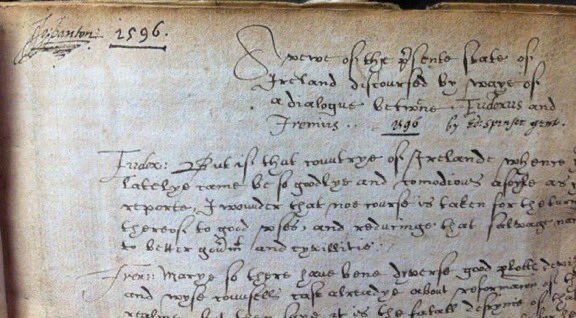 1596.
A vewe of the p̃sente state of
Ireland discoursed by waye of
a dialogue betwene Eudoxus and
Irenius . . 1596 by Ed: Spenser gent.
Eudox: But if that countrye of Irelande whence
latelye came be so goodlye and comodious a soyle as
reporte, I wounder that noe course is taken for the
thereof to good vses, and reducinge that salvage
to better gou̅mt and cyvillitie.
Iren: Marye so there have bene dyverse good plotts
and wyse counsells cast alreadye about reformacon of
realme, but they saye it is the fatall destynie of